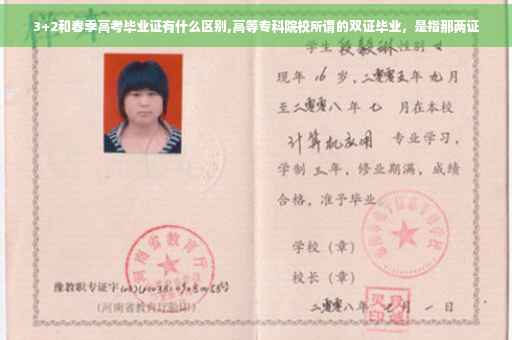 3+2和春季高考毕业证有什么区别,高等专科院校所谓的双证毕业，是指那两证
学生 段毅琳 性别 女
现年 16 岁，二零零五年 九 月
至二零零八年 七 月在本校
计算机应用 专业学习，
学制 三 年，修业期满，成绩
合格，准予毕业。
学校（章）
校长（章）
二零零八年 月 一 日
河南省教育厅
豫教职专证字
（河南省教育厅验印）